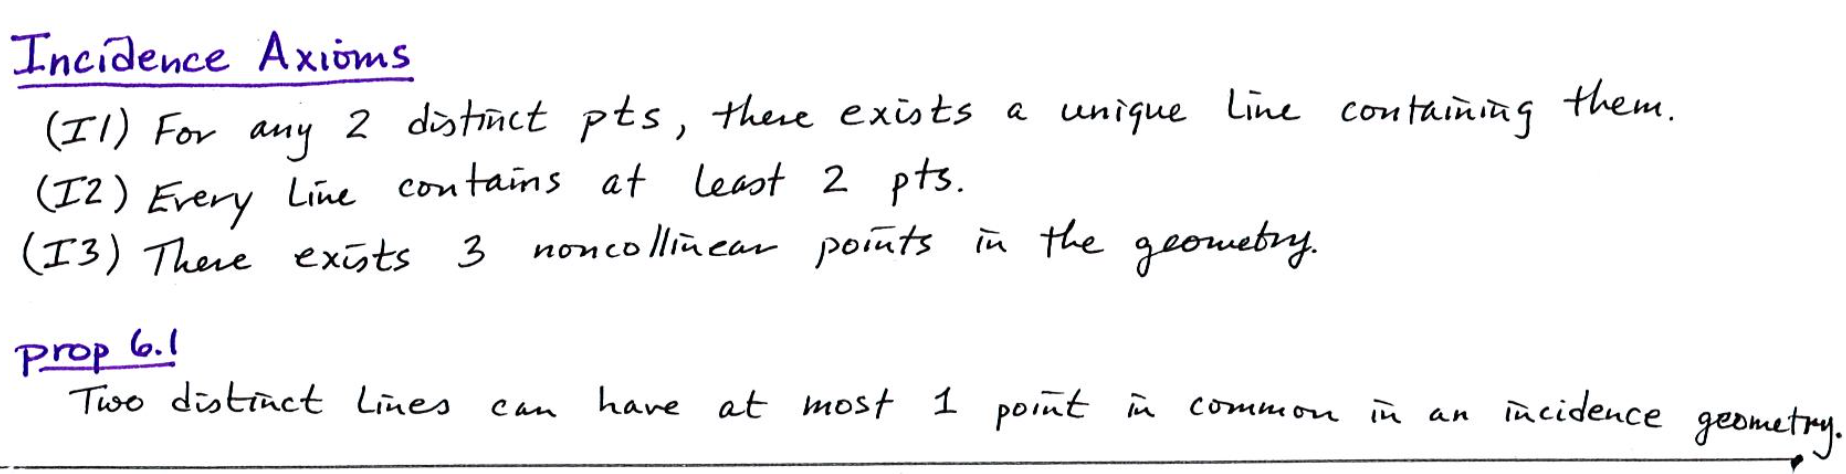 Incidence Axioms
(I1) For any 2 distinct pts, there exists a unique line containing them.
(I2) Every line contains at least 2 pts.
(I3) There exists 3 noncollinear points in the geometry.
prop 6.1
Two distinct lines can have at most 1 point in common in an incidence geometry.